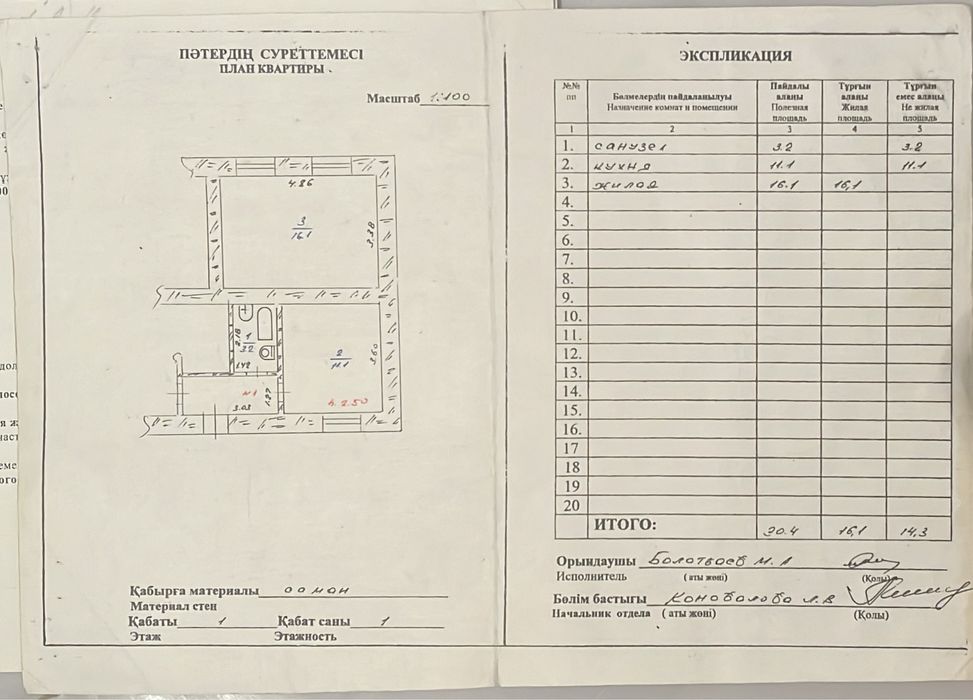 ПӘТЕРДІҢ СУРЕТТЕМЕСІ
ПЛАН КВАРТИРЫ
Масштаб 1:100
4.86
3
16.1
3.38
1
3.2
2.18
1.48
2
11.1
3.60
№1
3.03
1.27
h. 2.50
Қабырға материалы
Материал стен
Қабаты 1 Қабат саны 1
Этаж Этажность
ЭКСПЛИКАЦИЯ
№№ пп
Бөлмелердің пайдаланылуы
Назначение комнат и помещении
Пайдалы аланы
Полезная площадь
Тұрғын аланы
Жилая площадь
Тұрғын емес аланы
Не жилая площадь
1 2 3 4 5
1. санузел 3.2 3.2
2. кухня 11.1 11.1
3. жилая 16.1 16,1
4.
5.
6.
7.
8.
9.
10.
11.
12.
13.
14.
15.
16.
17
18
19
20
ИТОГО: 30.4 16,1 14,3
Орындаушы
Исполнитель (аты жөні) (Қолы)
Бөлім бастығы Коновалова Л.В
Начальник отдела (аты жөні) (Қолы)